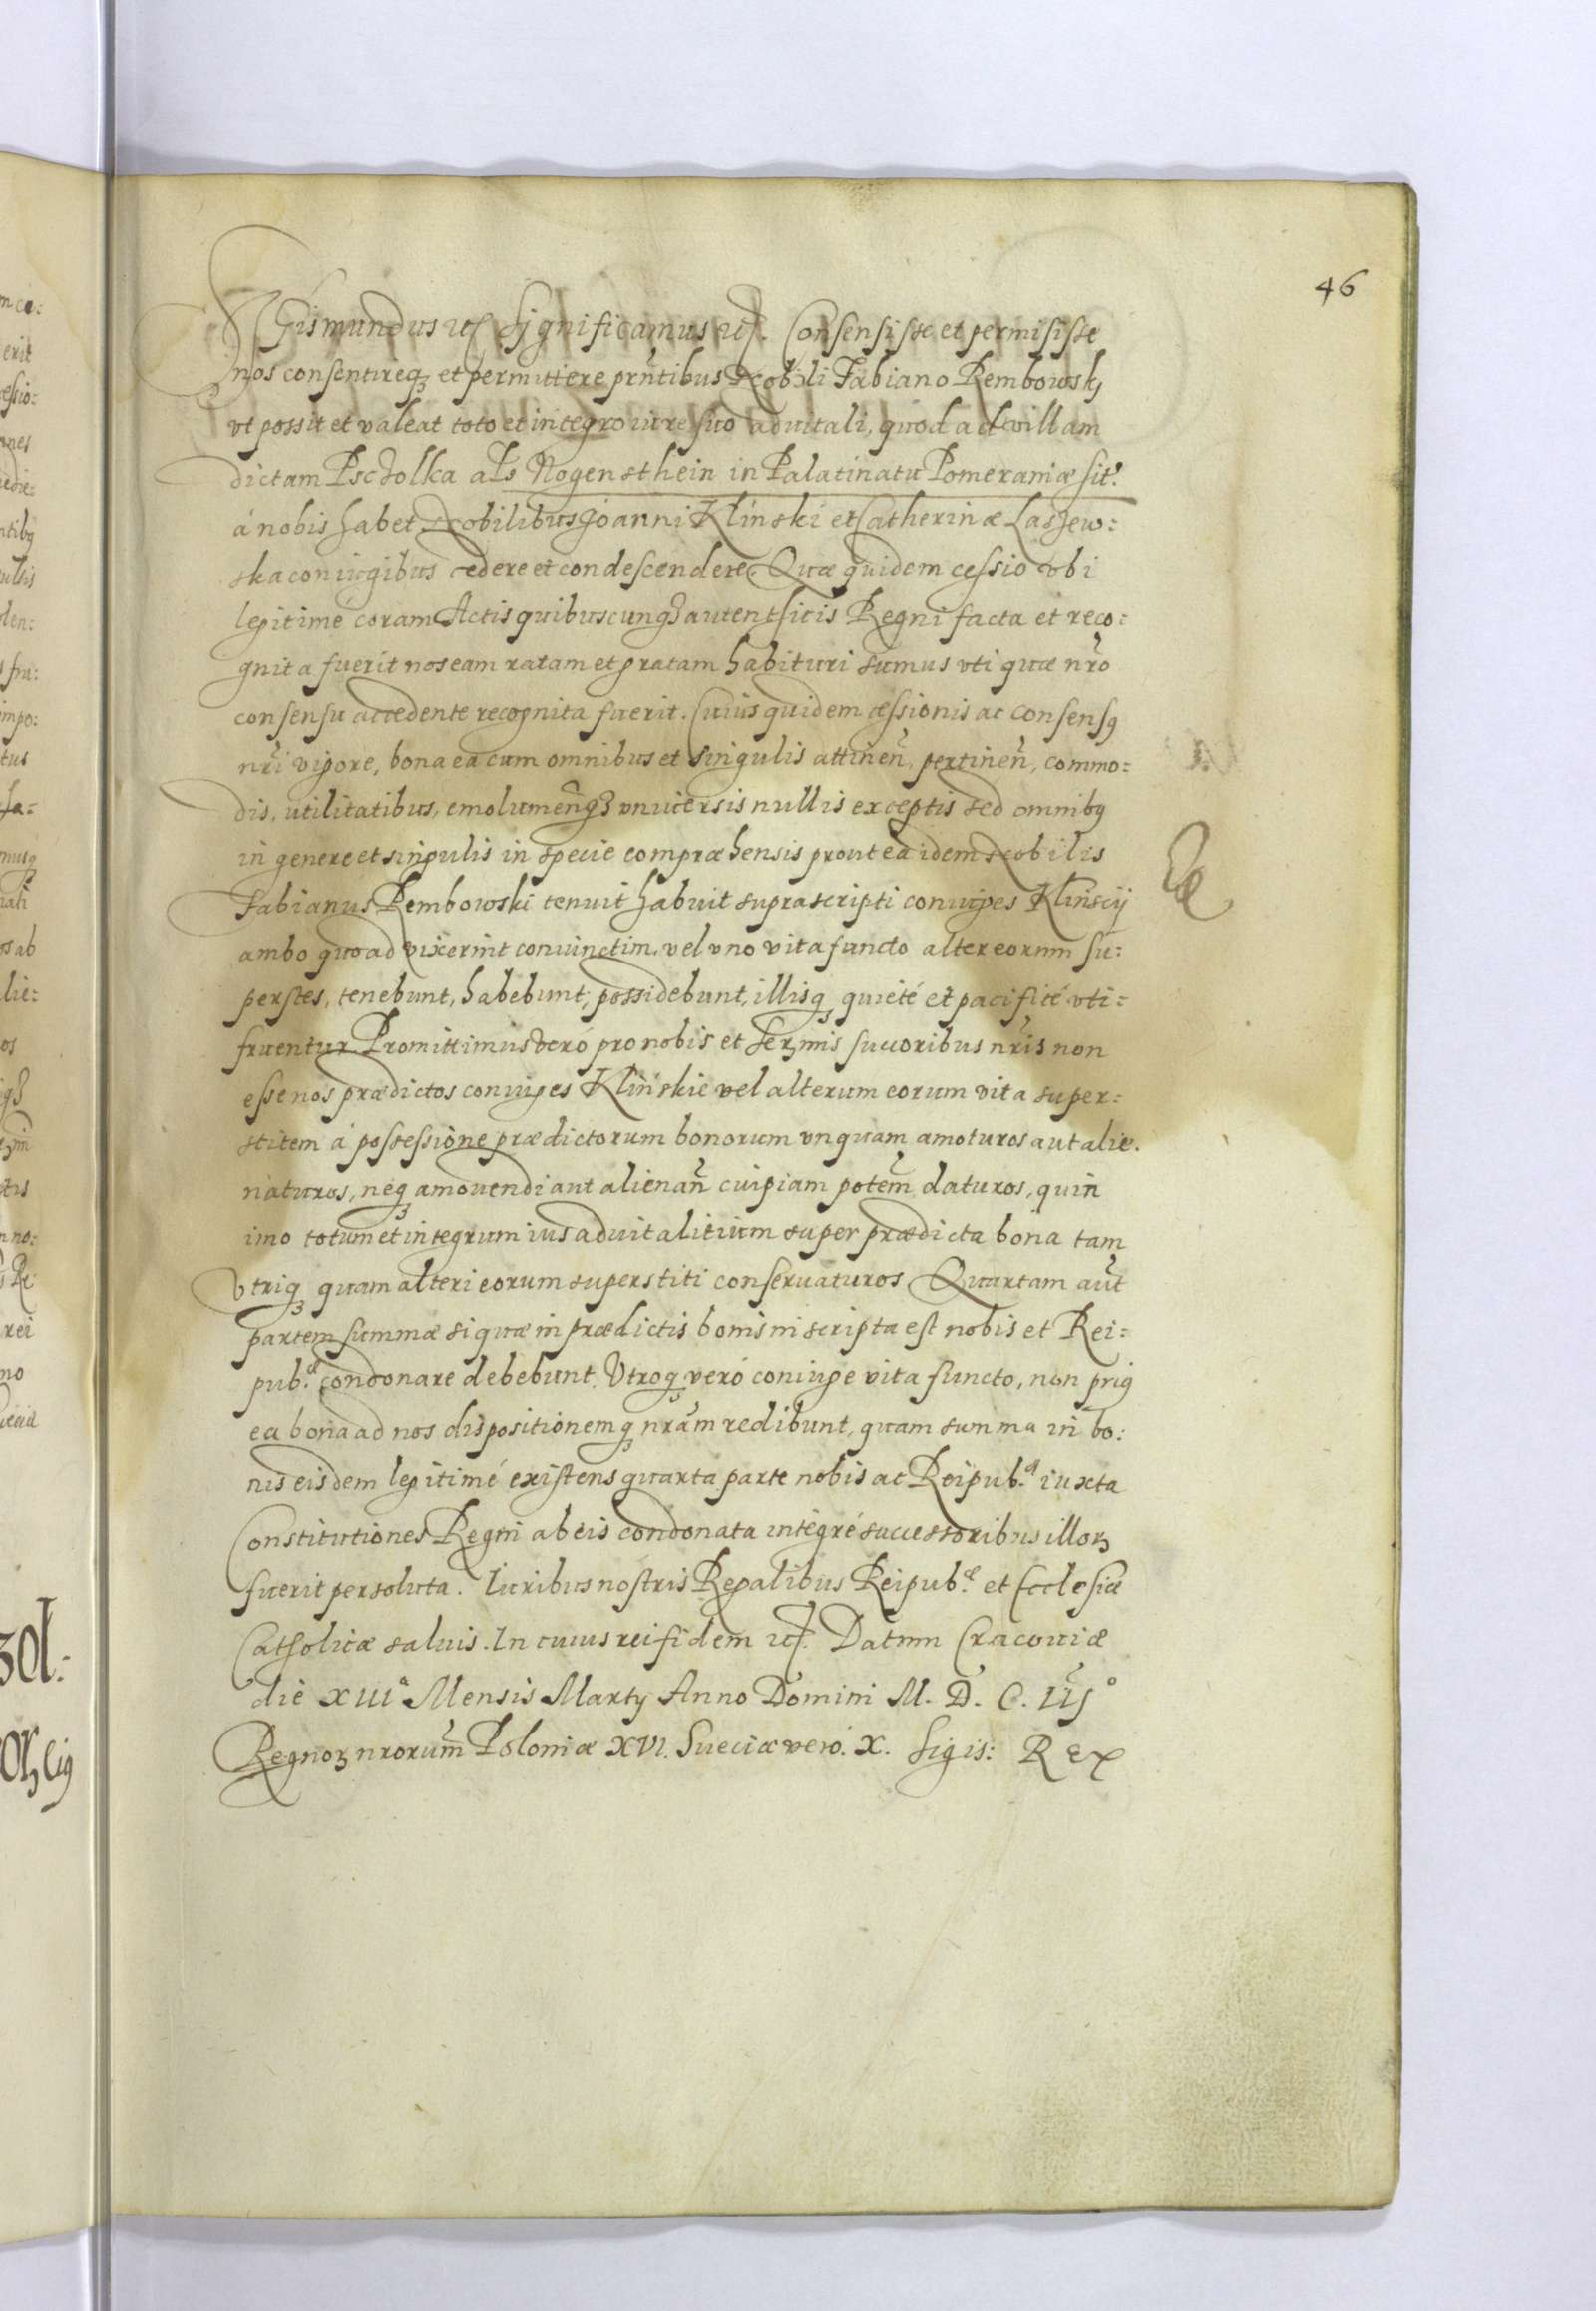 46
Sigismundus etc Significamus etc. Consensisse et permisisse
nos consentireq₃ et permittere prñtibus Nobili Fabiano Rembowskj
vt possit et valeat toto et integro iure suo aduitali, quod ad villam
dictam Psczolka als Nogensthein in Palatinatu Pomeraniæ sit:
á nobis habet Nobilibus Joanni Klinski et Catherinæ Laszew:
ska coniugibus cedere et condescendere. Quæ quidem cessio vbi
legitime coram Actis quibuscunq₃ autenthicis Regni facta et reco:
gnita fuerit nos eam ratam et gratam habituri sumus vti quæ nr̃o
consensu accedente recognita fuerit. Cuius quidem cessionis ac consensꝰ
nr̃i vigore, bona ea cum omnibus et singulis attineñ, pertineñ, commo=
dis, utilitatibus, emolumeñq₃ vniuersis nullis exceptis sed omnibꝰ
in genere et singulis in specie compræhensis prout ea idem Nobilis
Fabianus Rembowski tenuit habuit suprascripti coniuges Klinscij
ambo quoad vixerint coniunctim, vel vno vita functo alter eorum su:
perstes, tenebunt, habebunt, possidebunt, illisq₃ quieté et pacifité vti=
fruentur Promittimus veró pro nobis et Serz̃mis succoribus nr̃is non
esse nos prædictos coniuges Klinskie vel alterum eorum vita super=
stitem á possessione prædictorum bonorum vnquam amoturos aut alie.
naturos, neq₃ amouendi aut alienañ cuipiam potem̃ daturos, quin
imo totum et integrum ius aduitalitium super prædicta bona tam
vtriq₃ quam alteri eorum superstiti conseruaturos Quartam aũt
partem summæ si quæ in prædictis bonis inscripta est nobis et Rei=
pub:æ condonare debebunt. Vtroq₃ veró coniuge vita functo, non priꝰ
ea bona ad nos dispositionemq₃ nr̃am redibunt, quam summa in bo:
nis eisdem legitimé existens quarta parte nobis ac Reipub:æ iuxta
Constitutiones Regni ab eis condonata integré successoribus illoꝝ
fuerit persoluta. Iuribus nostris Regalibus Reipub:æ et Ecclesiæ
Catholicæ saluis. In cuius rei fidem etc. Datum Cracouiæ
die XIII° Mensis Martij Anno Domini M. D. C. IIJ°
Regnoꝝ nrorum̃ Poloniæ XVI. Sueciæ veró. X. Sigis: Rex